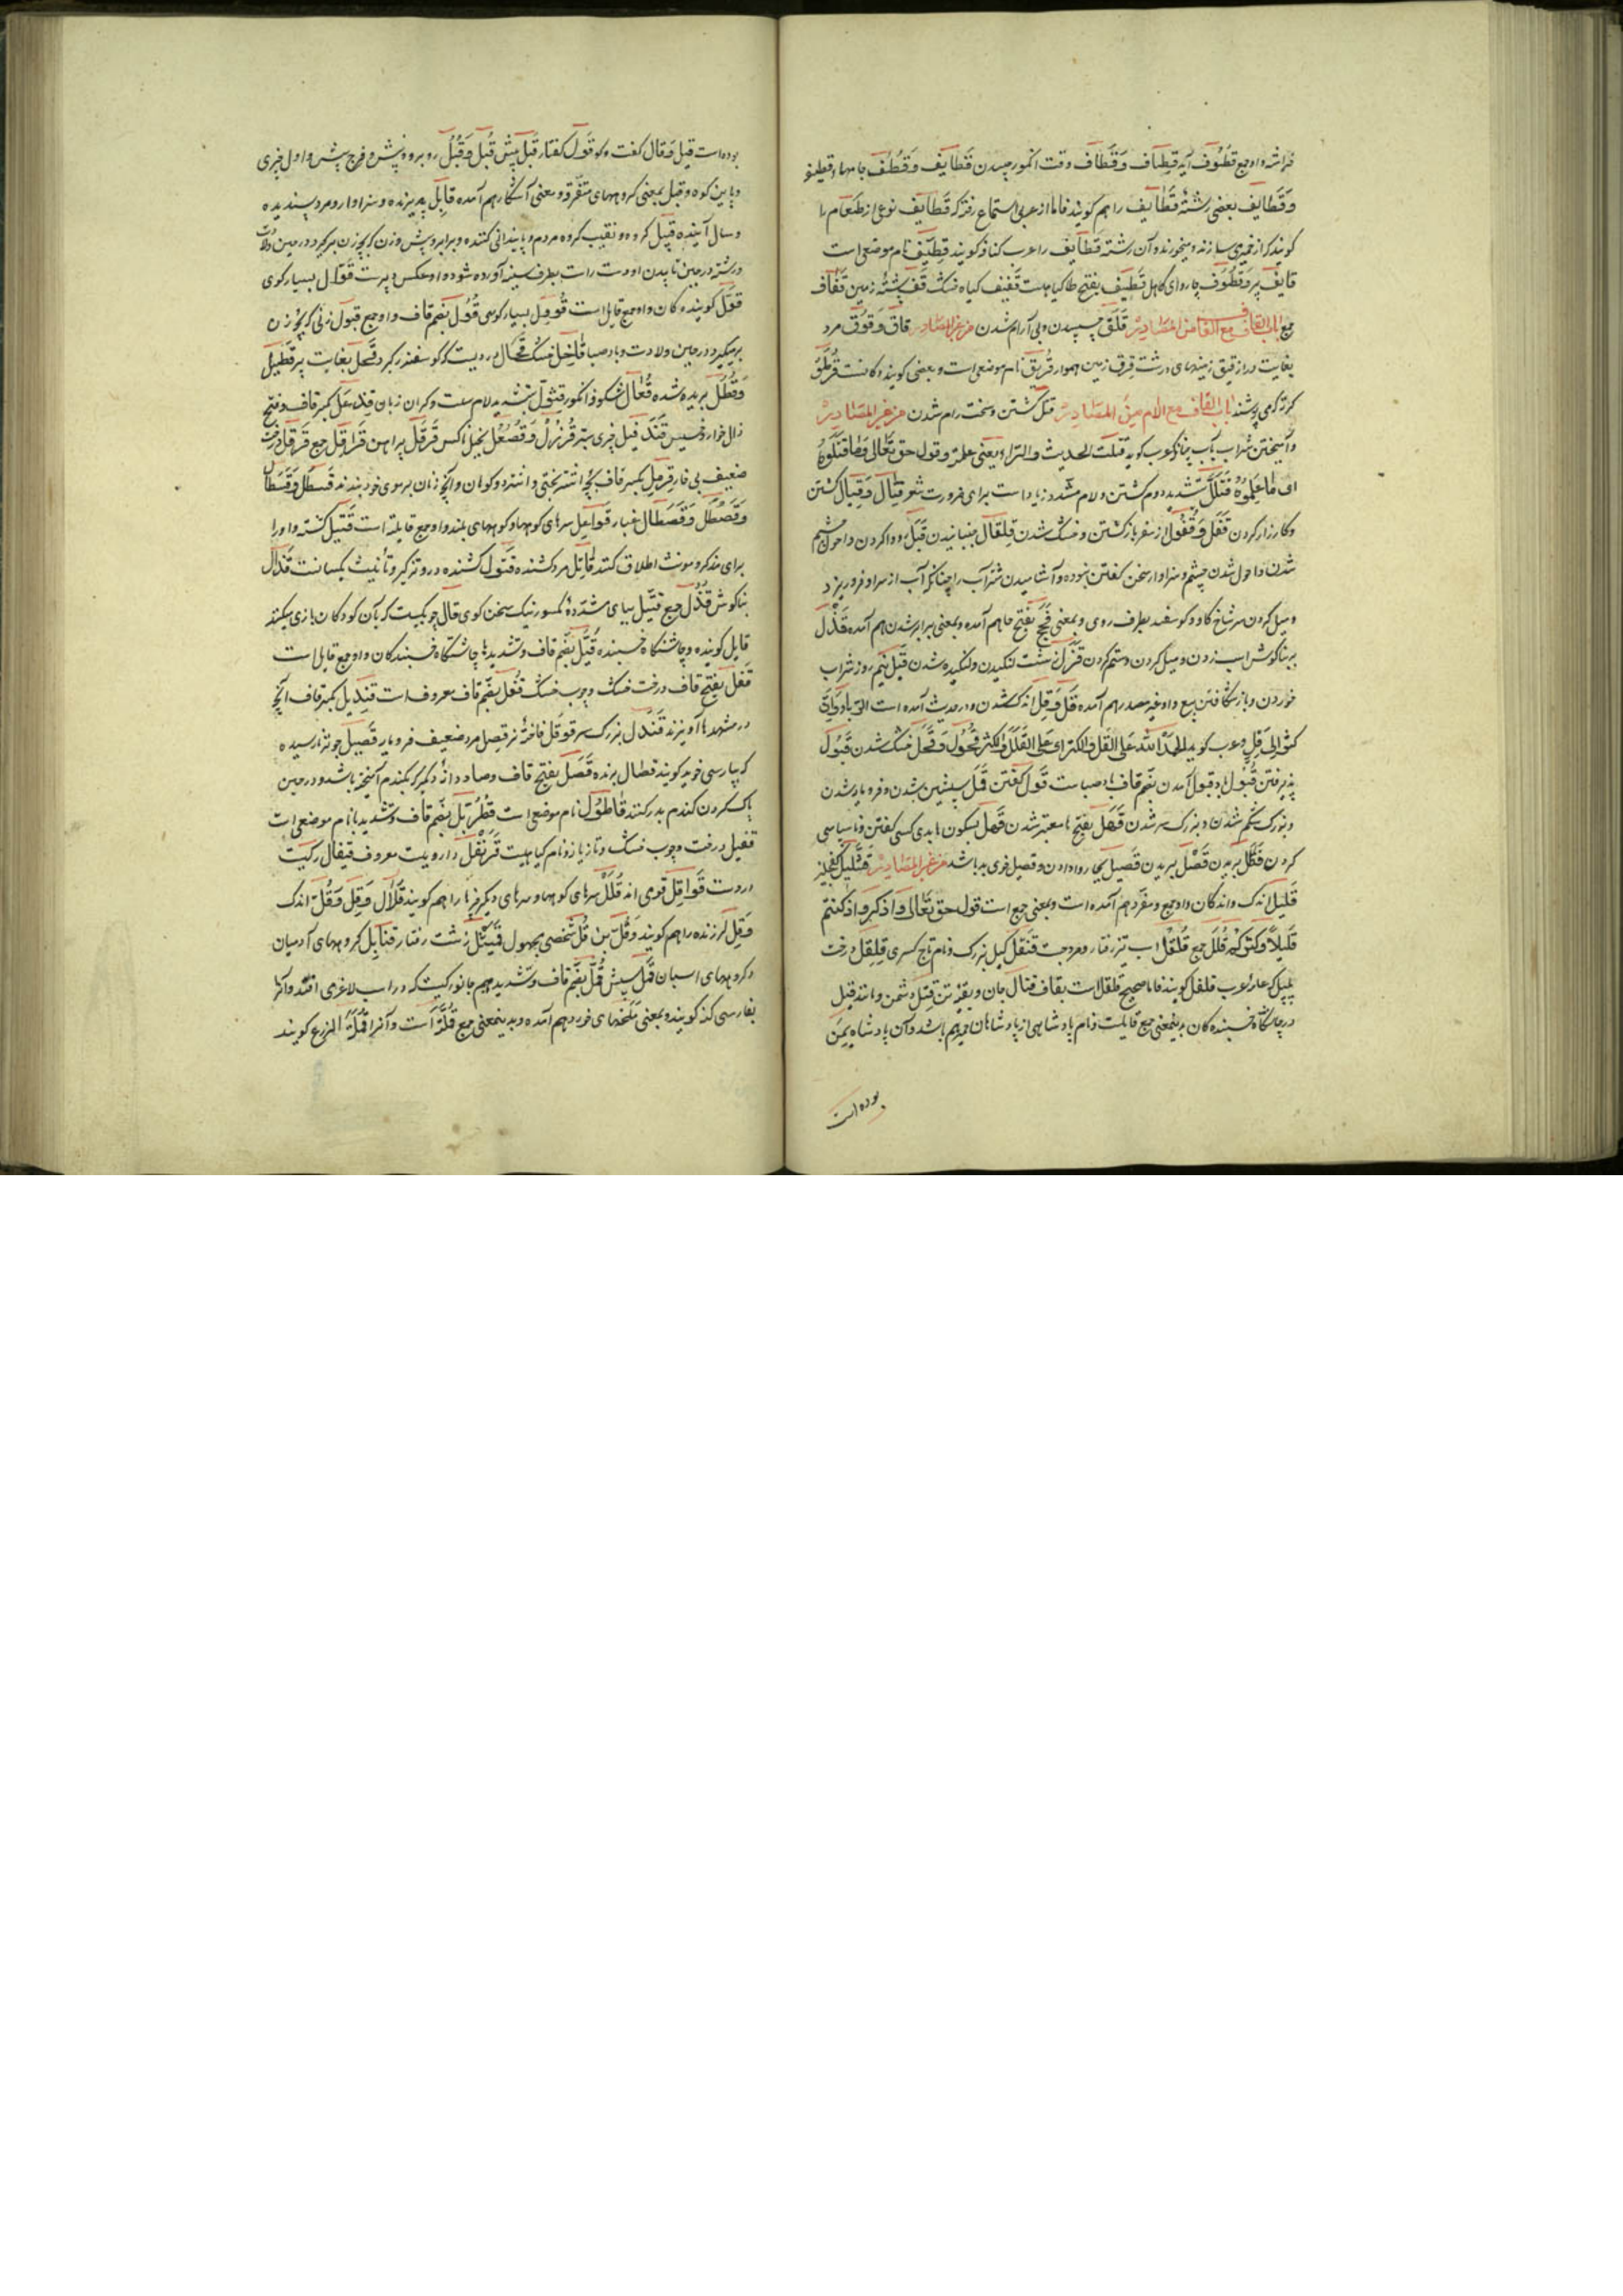 فراشه و او جمع قطوف آید قِطاف وَقَطاف وقت انکور چیدن قَطَایِف وَقُطُف جامها
وَقَطَایِف بعضی رشتهٔ قَطایف را هم کویند فاما از عربی استماع رفته که قطایف نوعی از طعام را
کویند که از خمیر می سازند و میخورند و آن رشته قطایف را عرب کنافه کویند قِطّیف نام موضعی است
قایف پی بر وَقَطُوف چاروای کاهل قَطِیف بفتح طا کیاهیست قَفِیف کیاه خشک قَف پشتهٔ زمین قِفاف
جمع باب القاف مع القاف من المصادر قَلَق چسپیدن و بی آرام شدن من غیر المصادر قاق وَقُوق مرد
بغایت دراز قیق زمینهای درشت قَرِق زمین هموار قُریق نام موضعی است و بعضی کویند دکانست قُرطَق
کرته که می پوشند باب القاف مع اللام من المصادر قتل کشتن و سخت رام شدن من غیر المصادر
و آمیختن شراب بآب چنانکه عرب کوید قتلت الحدیث والشراب یعنی علمته و قول حق تعالی وَمَا قَتَلُوهُ
ای مَا عَلِمُوهُ قَتلَلّ بتشدید دوم کشتن و لام مشدد زیاد است برای ضرورت شعر قِیتال وَقِتال کشتن
و کارزار کردن قَفَل وَقُفُول از سفر باز کشتن و خشک شدن قِلقال جنبانیدن قَبَل رو وا کردن و احول چشم
شدن و احول شدن چشم و سزاوار سخن کفتن نبوده و آشامیدن شتر آب را چنانکه آب از سر او فرو ریزد
و میل کردن سر شاخ کاو و کوسفند بطرف روی و بمعنی فَحَج بفتح حا هم آمده و بمعنی برابر شدن هم آمده قَذل
بر بناکوش اسب زدن و میل کردن و ستم کردن قَزَل زشت لنکیدن و لنکیده شدن قَیل نیم روز شراب
خوردن و باز شکافتن بیع و او غیر مصدر هم آمده قَلّ وَقِلّ اندک شدن و در حدیث آمده است الربا وَاِن
کثر الی قِلّ و عرب کوید الحمد لله علی القل والکثر ای علی القلل والکثر قُحُول وَقَحَل خشک شدن قَبُول
پذیرفتن قُبُول باد قبول آمدن بضم قاف باد صباست قَول کفتن قَمَل سپشین شدن و فرو مایه شدن
و بزرک شکم شدن و بزرک سر شدن قَهَل بفتح ها متغیر شدن قَهل بسکون ها بدی کسی کفتن و ناسپاسی
کردن قَطل بریدن قَصل بریدن قَصیل بچاروا دادن و قصیل خوی بد باشد من غیر المصادر
قَلیل اندک و اندکان و او جمع و مفرد هم آمده است و بمعنی جمع است قول حق تعالی وَاذکروا اذ کنتم
قَلِیلاً فکثرکم قُلَل جمع قُلقُل اسب تیز رفتار و مرد چست قَنقَل کیل بزرک و نام تاج کسری قِلقِل درخت
پلپل که عامهٔ عرب فلفل کویند فاما صحیح قلقل است بقاف قتال جان و بقیهٔ تن قِتل دشمن و مانند قیل
در چاشتکاه خسبنده کان بدینمعنی جمع قایلست و نام پادشاهی از پادشاهان حمیر هم باشد و آن پادشاه یمن
بوده است
بوده است قیل وَقال کفت و کو قَول کفتار قَبل پیش قُبُل وَقُبل رو برو و پیش و فرج پیش و اول چیزی
و پایین کوه و قبل بمعنی کروههای متفرق و بمعنی آشکار هم آمده قابِل پذیرنده و سزاوار و مرد پسندیده
و سال آینده قبیل کروه و نقیب کروه مردم و پایندانی کننده و برابر و پیش و زن که بچهٔ زن برکیرد در حین ولادت
و رشته در حین تابیدن او دست راست بطرف سینه آورده شود و او عکس دبیر است قَوّال بسیار کوی
قُوَّل کوینده کان و او جمع قایل است قَؤُول بسیار کوی قُوُل بضم قاف و او جمع قبول زنی که بچهٔ زن
برمیکیرد در حین ولادت و باد صبا قاحِل خشک قُحال دردیست که کوسفند را کیرد قَحل بغایت پیر قَطیل
وَقُطُل بریده شده قُعال شکوفهٔ انکور قِثوَل بتشدید لام سست و کران زبان قِندَعل بکسر قاف و فتح
ذال خوار و خسیس قَندَفیل چیزی ستبر قُرزُل وَقُصعُل بخیل اکس قَرقَل پیراهن قَراقِل جمع قَرمَل درخت
ضعیف بی خار قِرمِل بکسر قاف بچهٔ اشتر بختی و اشتر دو کوهان و آنچه زنان بر موی خود بندند قَسطَل وَقَسطال
وَقَصطَل وَقَصطال غبار قَواعِل سرهای کوهها و کوههای بلند و او جمع قایلة است قَتِیل کشته و او را
برای مذکر و مونث اطلاق کنند قاتِل مرد کشنده قَتُول کشنده و درو تذکیر و تانیث یکسانست قَذال
بناکوش قُذُل جمع قَیِّل بیای مشدّدهٔ مکسور نیک سخن کوی قال چوبکیست که بآن کودکان بازی میکنند
قایل کوینده و چاشتکاه خسبنده قُیَّل بضم قاف و تشدید یا چاشتکاه خسبندکان و او جمع قایل است
قَفل بفتح قاف درخت خشک و چوب خشک قُفل بضم قاف معروف است قِندِیل بکسر قاف آنچه
در مشهدها آویزند قَندَل بزرک سر قوقل فاختهٔ نر قِصل مرد ضعیف فرو مایه قَصیل جو نارسیده
که بپارسی خوید کویند قصال برنده قَصَل بفتح قاف و صاد دانهٔ دیکر که بکندم آمیخته باشد و در حین
پاک کردن کندم بدر کنند قاطول نام موضعی است قُطرُبّل بضم قاف و تشدید با نام موضعی است
قفیل درخت و چوب خشک و تازیانه و نام کیاهیست قَرَنفُل دارویست معروف قیفال رکیست
در دست قَواقِل قومی اند قُلَل سرهای کوهها و سرهای دیکر چیزها را هم کویند قُلال وَقِل وَقُل اندک
وَقِل لرزنده را هم کویند وَقُل بن قُل شخصی مجهول قَمَیثَل زشت رفتار قنابِل کروههای آدمیان
و کروههای اسپان قَمل سپش قُمَّل بضم قاف و تشدید میم جانورکیست که در اسب لاغری افتد و آنرا
بفارسی کنه کویند و بمعنی ملخهای خورد هم آمده و بدینمعنی جمع قُمَّلة است و آنرا قُمَّلة الزرع کویند